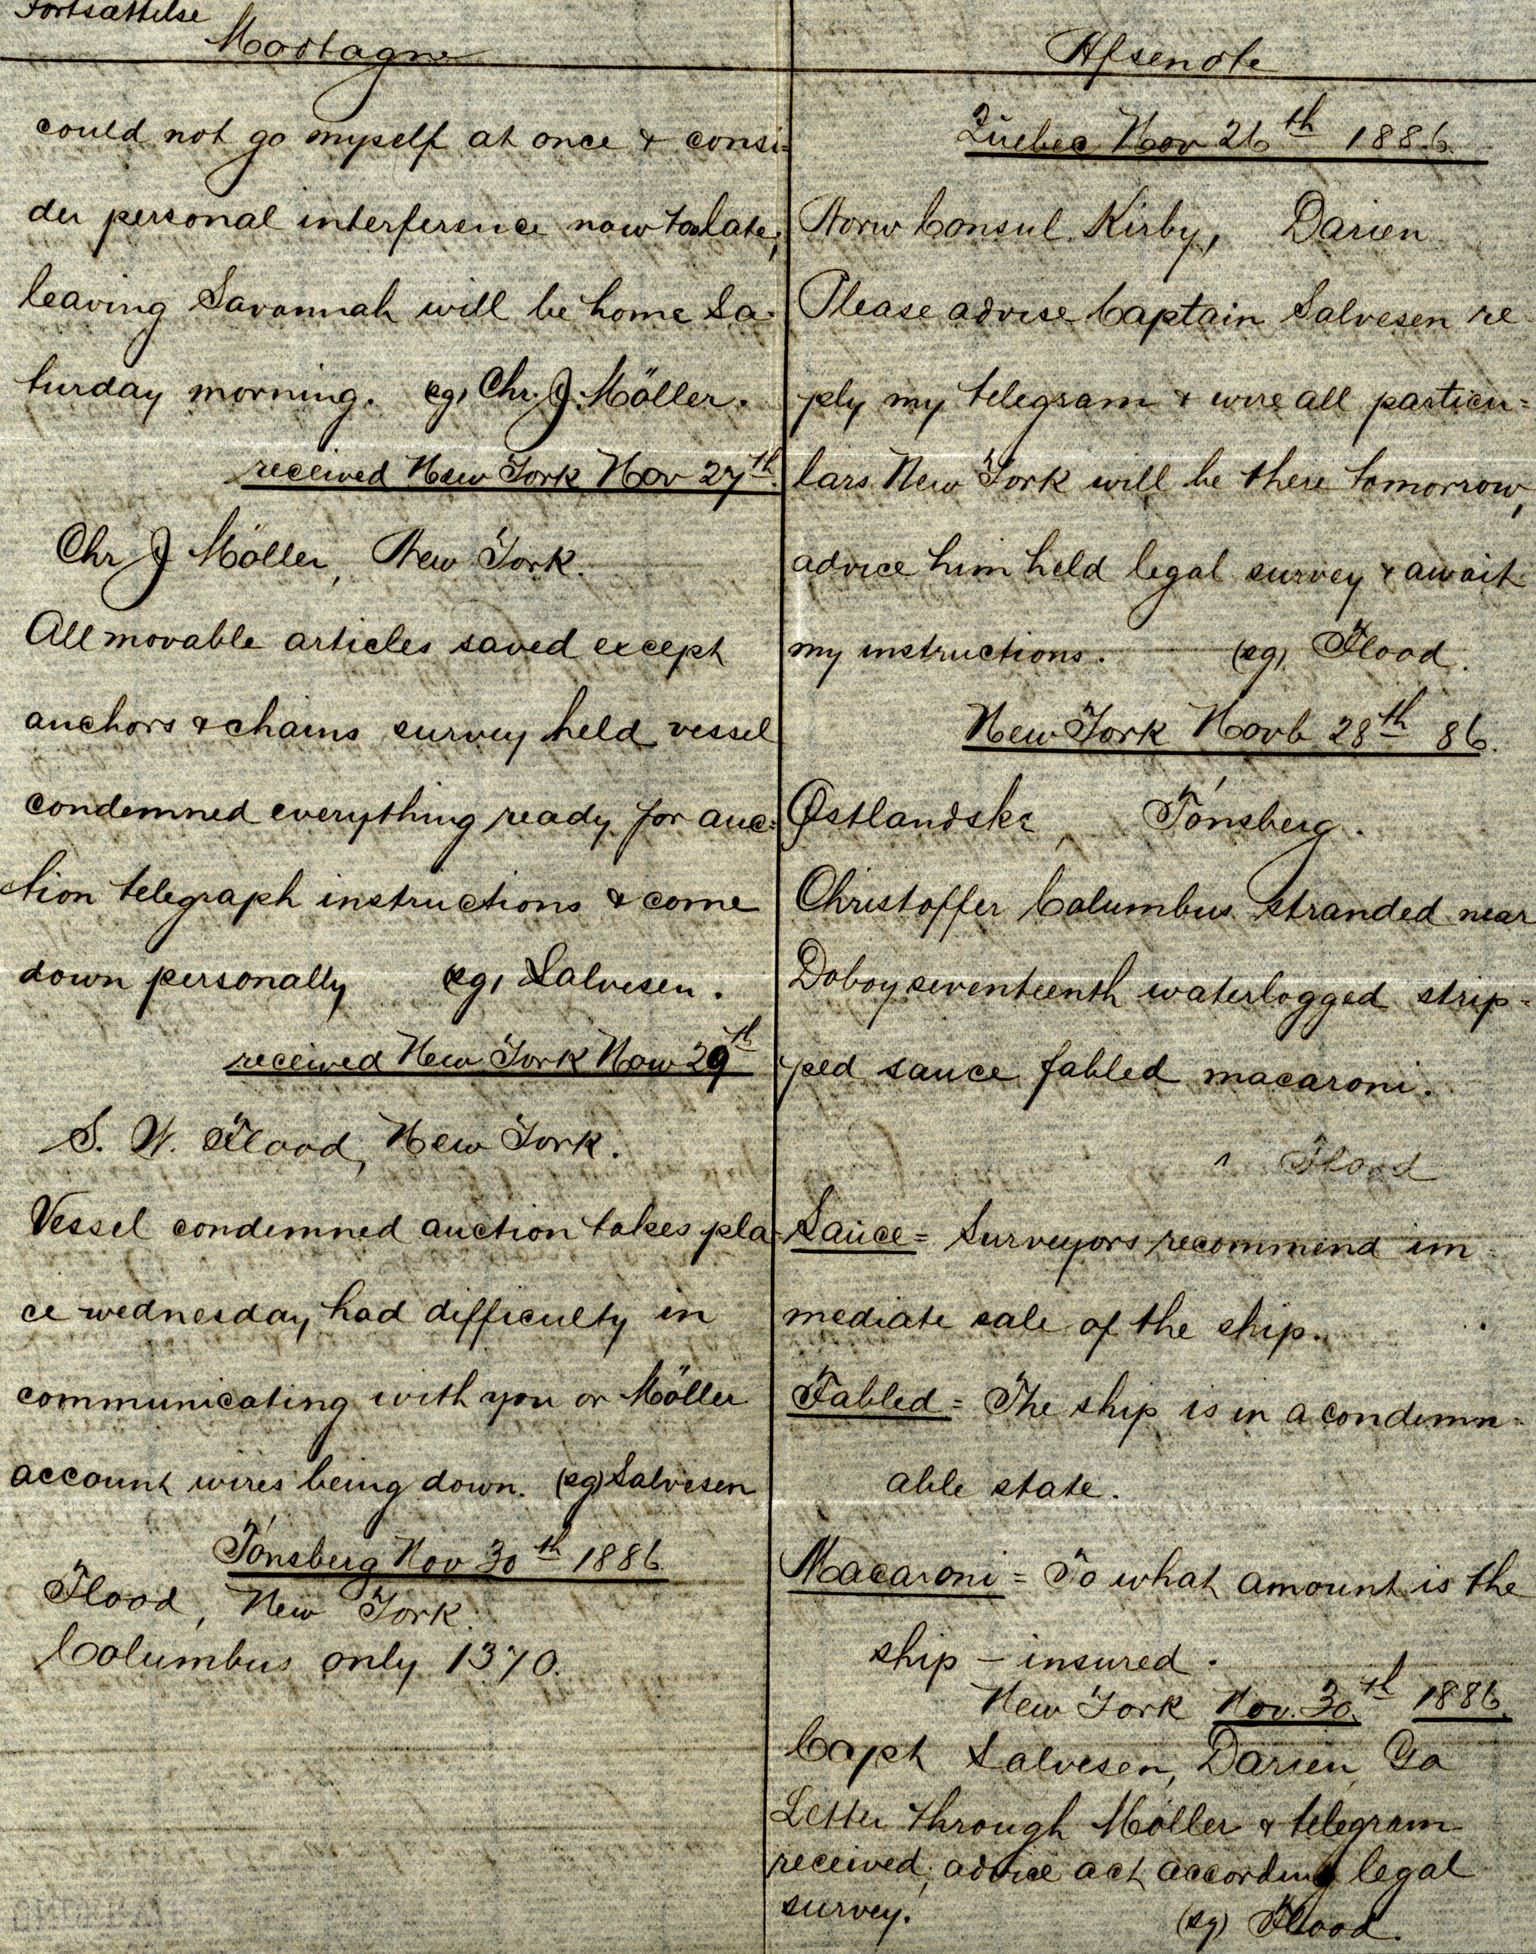 Fortsættelse
Modtagne
could not go myself at once & consi=
der personal interference now too late,
leaving Savannah will be home Sa-
turday morning. (sg) Chr. J. Möller.
received New York Nov 27th.
Chr J Möller, New York.
All movable articles saved except
anchors & chains survey held vessel
condemned everything ready for auc=
tion telegraph instructions & come
down personally (sg) Salvesen.
received New York Now 29th
S. W. Flood, New York.
Vessel condemned auction takes pla-
ce wednesday, had difficulty in
communicating with you or Möller
account wires being down. (sg) Salvesen
Tónsberg Nov 30th 1886
Flood, New York.
Columbus only 1370.
Afsendte
Quebec Nov 26th 1886.
Norw Consul Kirby, Darien
Please advise Captain Salvesen re-
ply my telegram & wire all particu=
lars New York will be there tomorrow,
advice him held legal survey & await
my instructions. (sg) Flood.
New York Novb 28th 86.
Østlandske, Tónsberg.
Christoffer Columbus stranded near
Doboy seventeenth waterlogged strip-
ped sauce fabled macaroni.
Flood
Sauce = Surveyors recommend im-
mediate sale of the ship.
Fabled = The ship is in a condemn-
able state.
Macaroni = To what amount is the
ship – insured.
New York Nov. 30.th 1886.
Capt Salvesen, Darien, Ga
Letter through Möller & telegram
received, advice act according legal
survey. (sg) Flood.